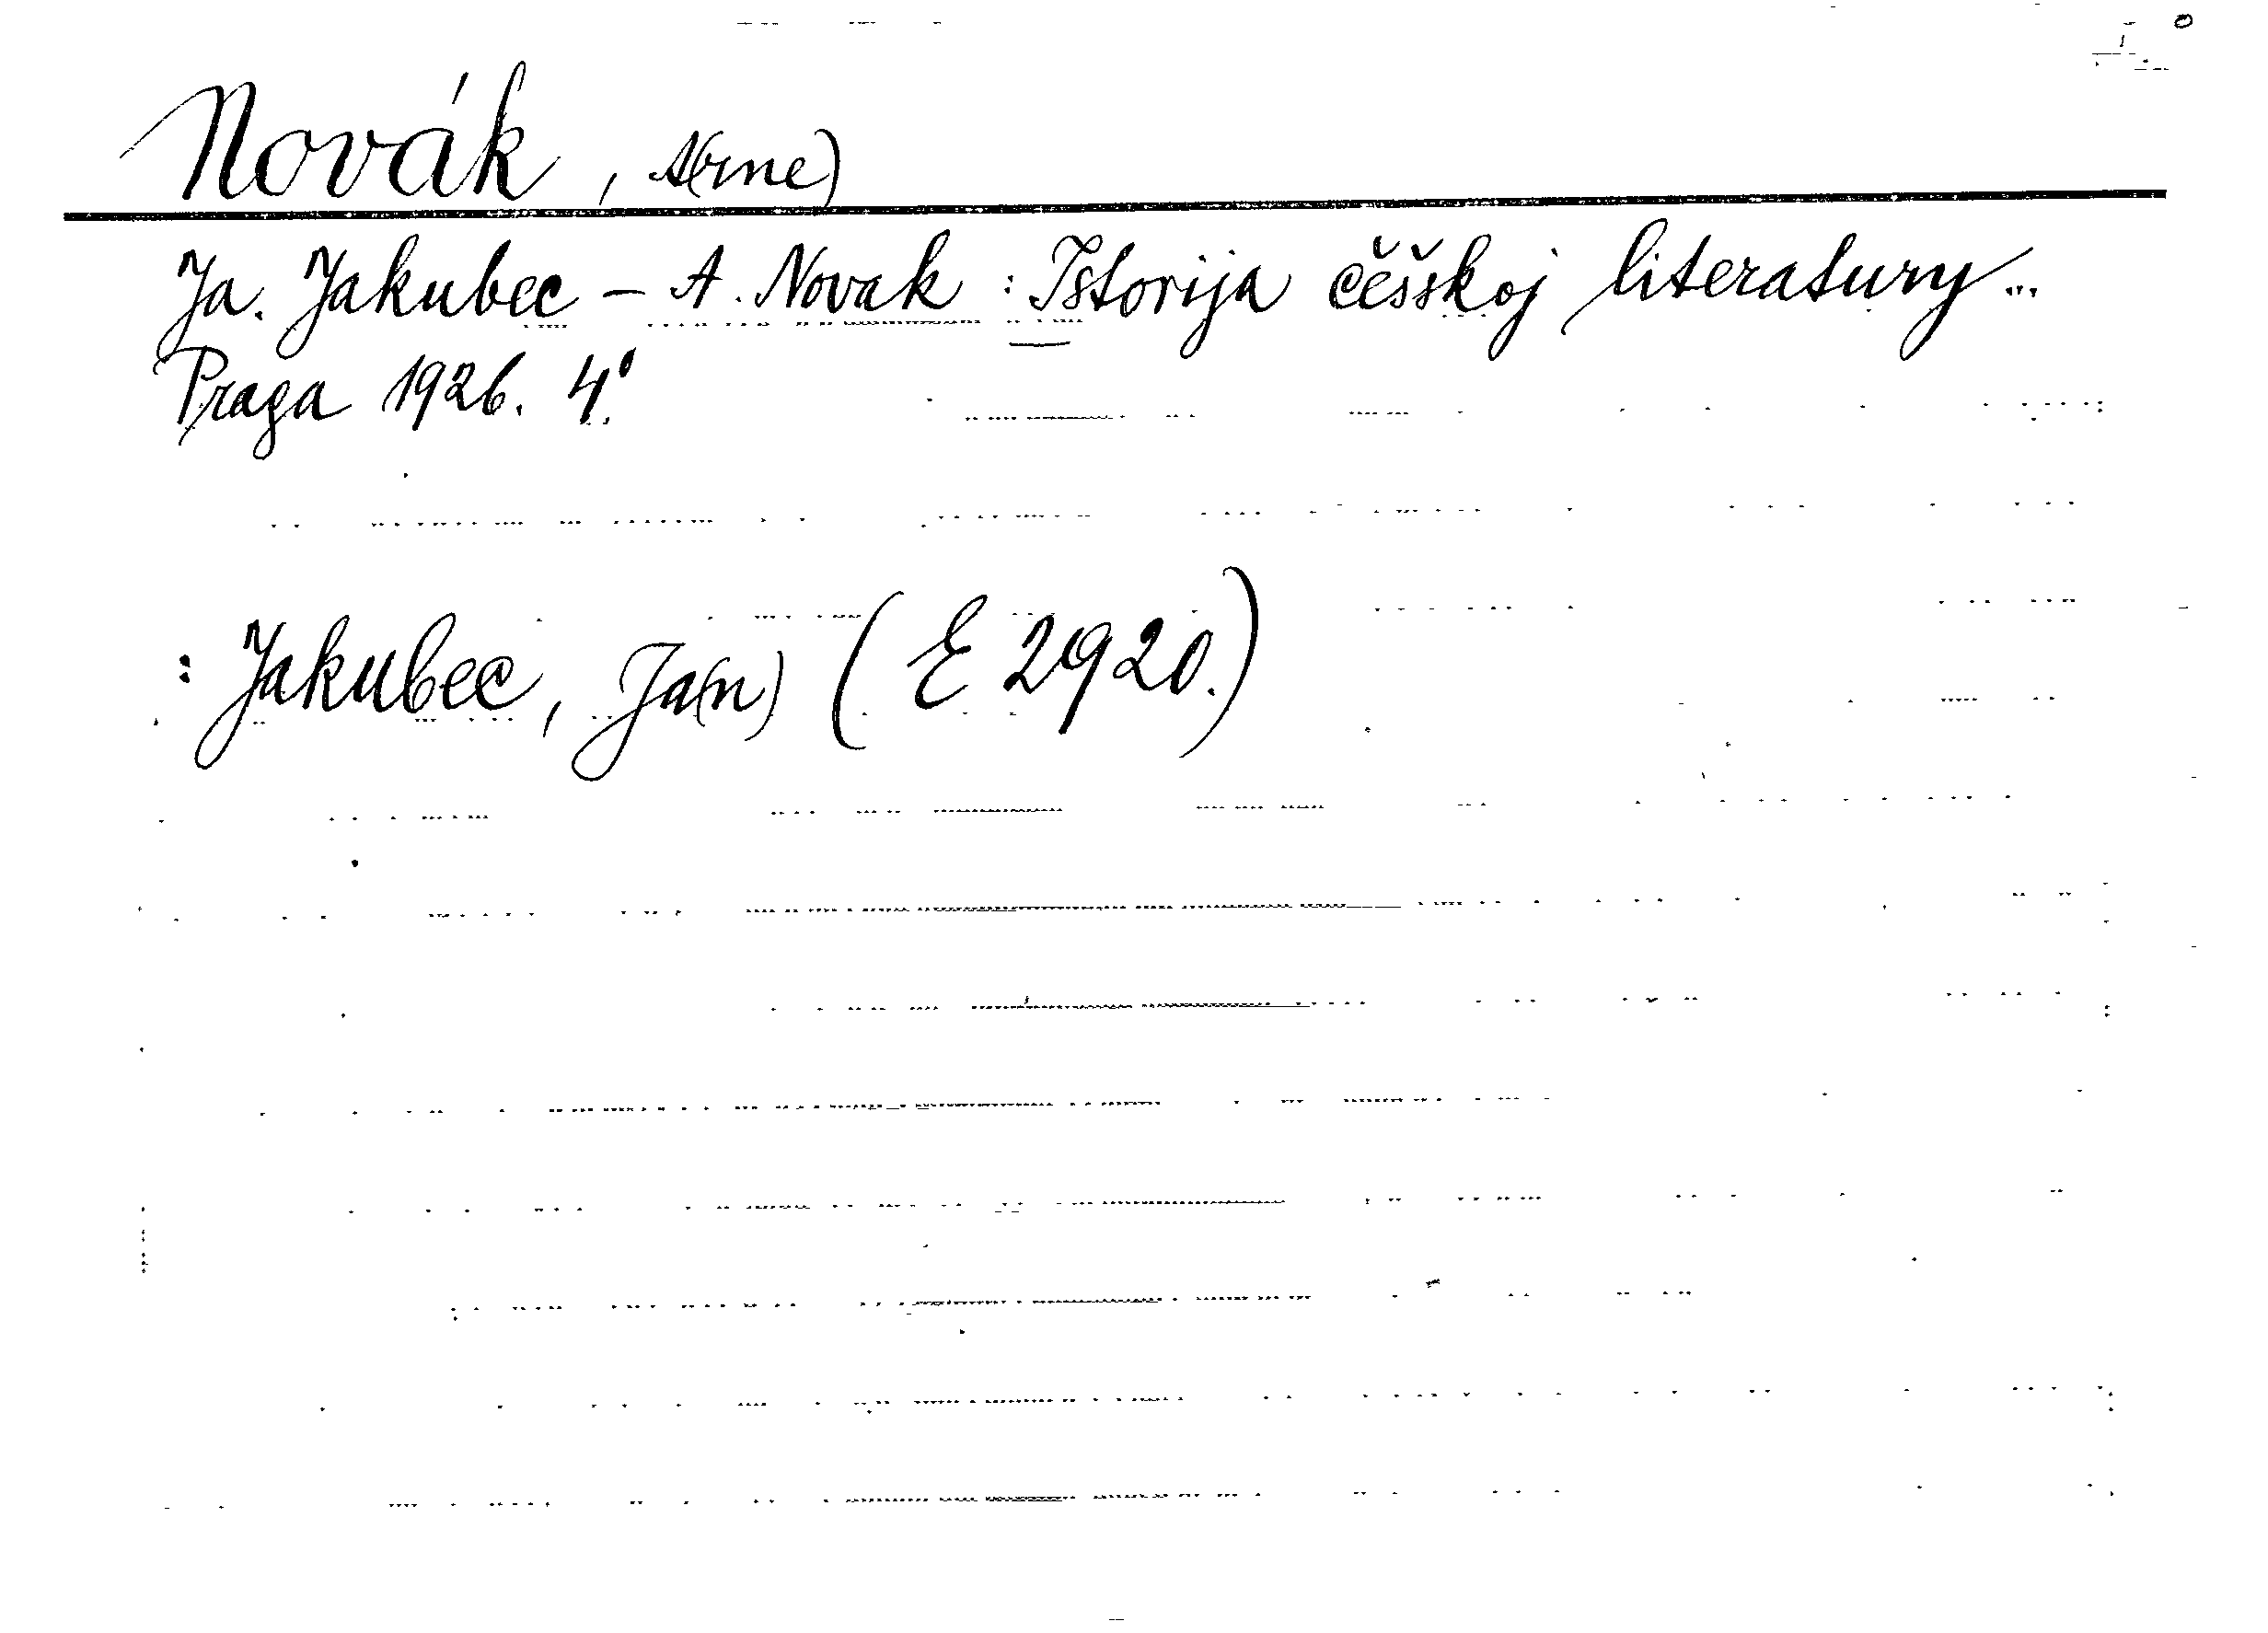 Novák, A(rne)
Ja. Jakubec - A. Novak : Istorija čěšskoj literatury...
Praga 1926. 4°.
: Jakubec, Ja(n) (E 2920.)